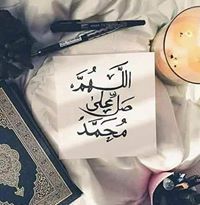 اللَّهُمَّ
صَلِّ عَلَى
مُحَمَّد